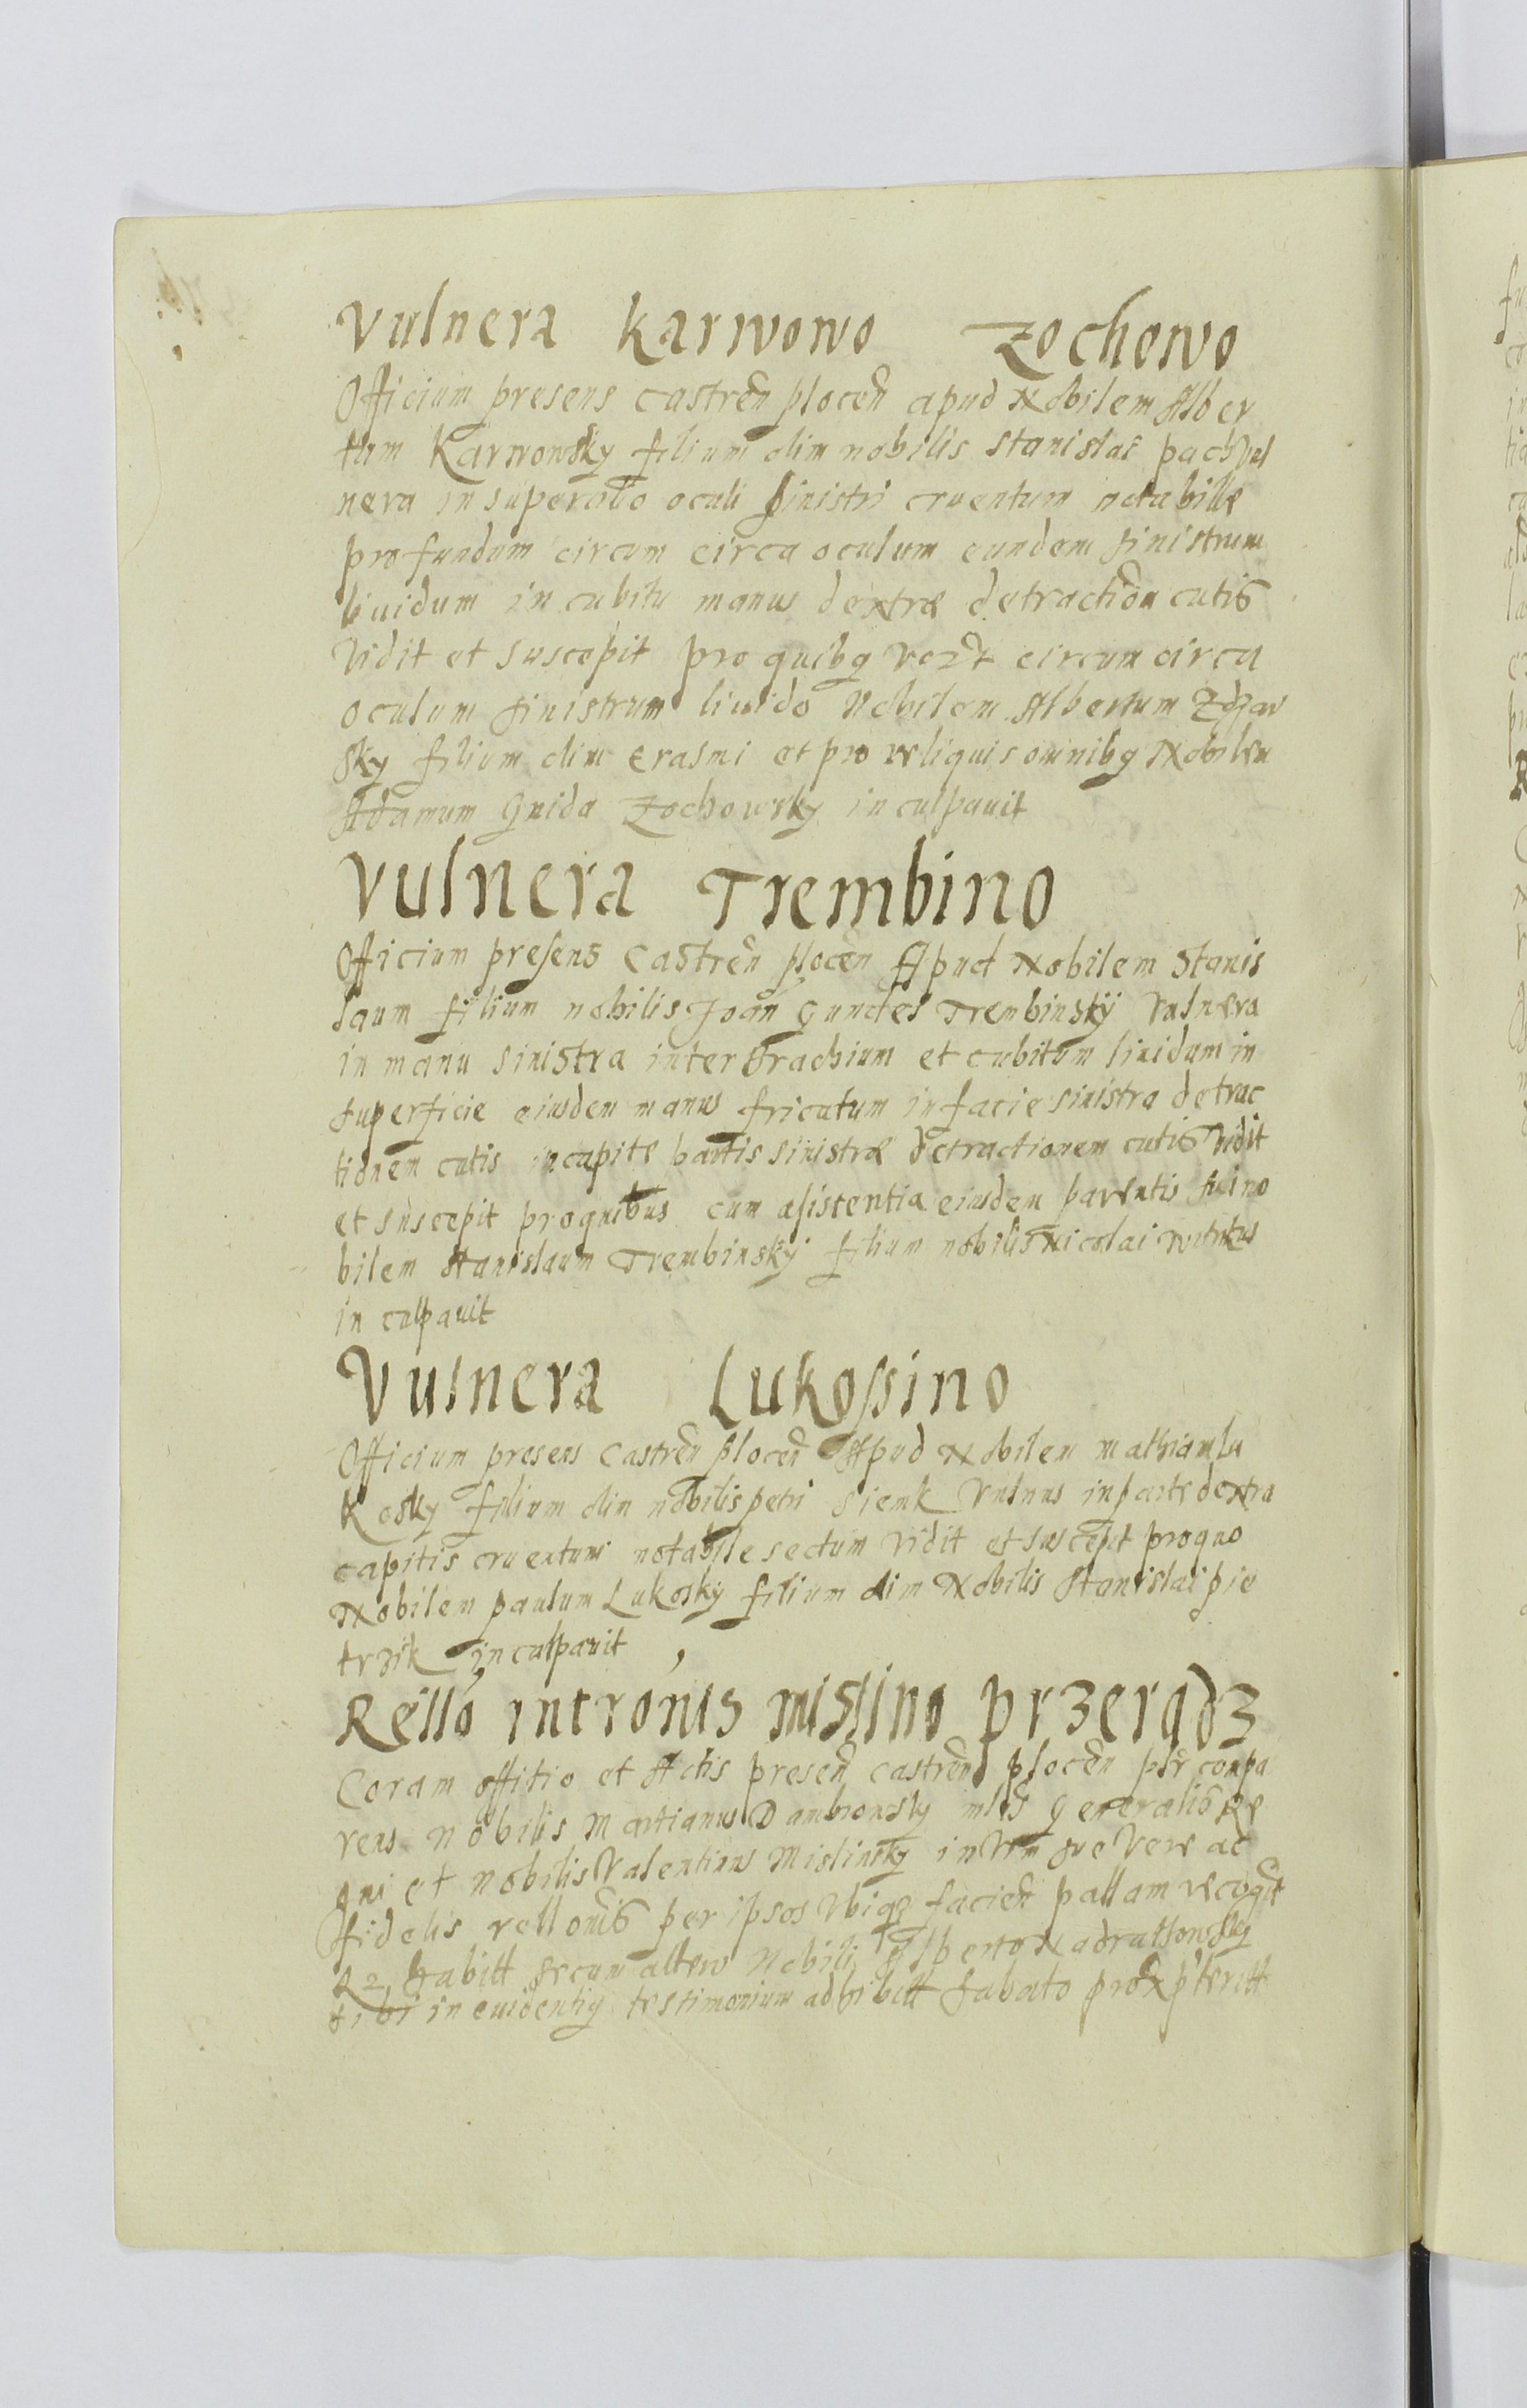 Vulnera Karwowo Zochowo
Officium presens Castren̄ plocen̄ apud Nobilem Alber
tum Karwowsky filium olim nobilis Stanislai pach vul
nera in supercilio oculi sinistri cruentum notabille
profundum circum circa oculum eundem sinistrum
liuidum in cubitu manus dextræ detraction̄ cutis
Vidit et suscepit pro quibq circum circa
oculum sinistrum liuido Nobilem Albertum
sky filium olim Erasmi et pro reliquis omnibq Nobilem
Adamum Gnida Zochowsky inculpauit
Vulnera Trembino
Officium presens Castren̄ plocen̄ Apud Nobilem Stanis
laum filium nobilis Joan̄ Gunctes Trembinskÿ Vulnera
in manu sinistra inter Brachium et cubitum liuidum in
superficie eiusdem manus fricatum in facie sinistra detrac
tionem cutis in capite partis sinistræ detractionem cutis vidit
et suscepit pro quibus cum asistentia eiusdem parentis sui no
bilem Stanislaum Trembinskÿ filium nobilis Nicolai
in culpauit
Vulnera Lukossino
Officium presens Castren̄ plocen̄ Apud Nobilem Mathiam Lu
kosky filium olim nobilis petri Sienk Vulnus in parte dextra
capitis cruentum notabile sectum Vidit et suscepit pro quo
Nobilem paulum Lukoskÿ filium olim Nobilis Stanislai pie
trzik inculpauit
Rello intronis mislino przeradz
Coram offitio et Actis presen̄ castren̄ plocen̄ plr̄ compa
rens nobilis Martianus Dambrowsky Generalis Re
gni et nobilis Valentinus Mislinsky in Vim sue Vere ac
fidelis rellonis per ipsos Vbiqz facien̄ pallam recog̅t
Qz habitt secum altero Nobili Alberto Nadratkowsky
sibi in euidentiq testimonium adhibitt sabato prox p̅teritt